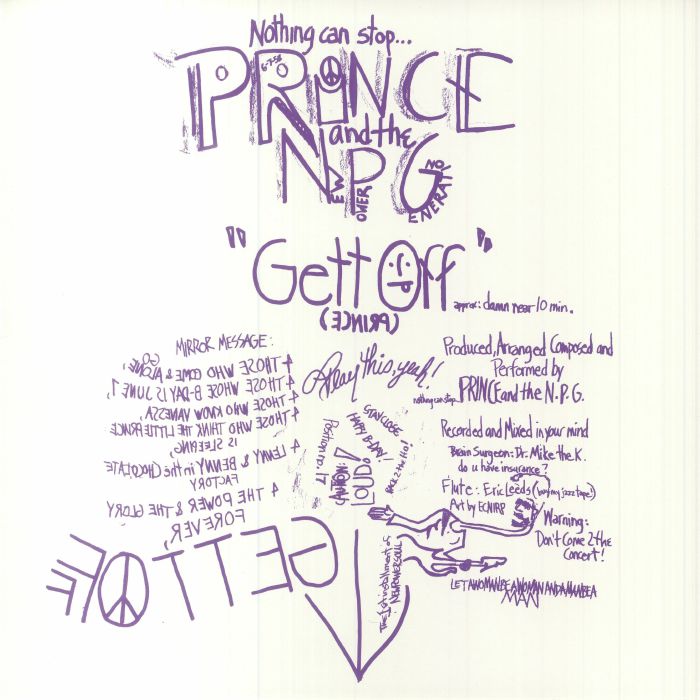 Nothing can stop...
PRINCE
6-7-58
and the
NPG
NEW POWER GENERATION
"Gett Off"
approx: damn near 10 min.
(PRINCE)
MIRROR MESSAGE:
4 THOSE WHO COME & ALONE, GO
4 THOSE WHOSE B-DAY IS JUNE 7,
4 THOSE WHO KNOW VANESSA,
4 THOSE WHO THINK THE LITTLE PRINCE
IS SLEEPING,
4 LENNY & BENNY in the CHOCOLATE
FACTORY
4 THE POWER & THE GLORY
FOREVER,
GETT OFF
Play this, yeah!
STAY CLOSE
HAPPY B-DAY!
Back 2 the Ho!
Position no. 17
CAUTION:
LOUD!
The 1st installment of
NEW POWER SOUL
Produced, Arranged Composed and
Performed by
nothing can stop... PRINCE and the N.P.G.
Recorded and Mixed in your mind
Brain Surgeon: Dr. Mike the K.
do u have insurance?
Flute: Eric Leeds (buy my jazz tape!)
Art by ECNIRP
Warning:
Don't Come 2 the
Concert!
LET A WOMAN BE A WOMAN AND A MAN BE A
MAN